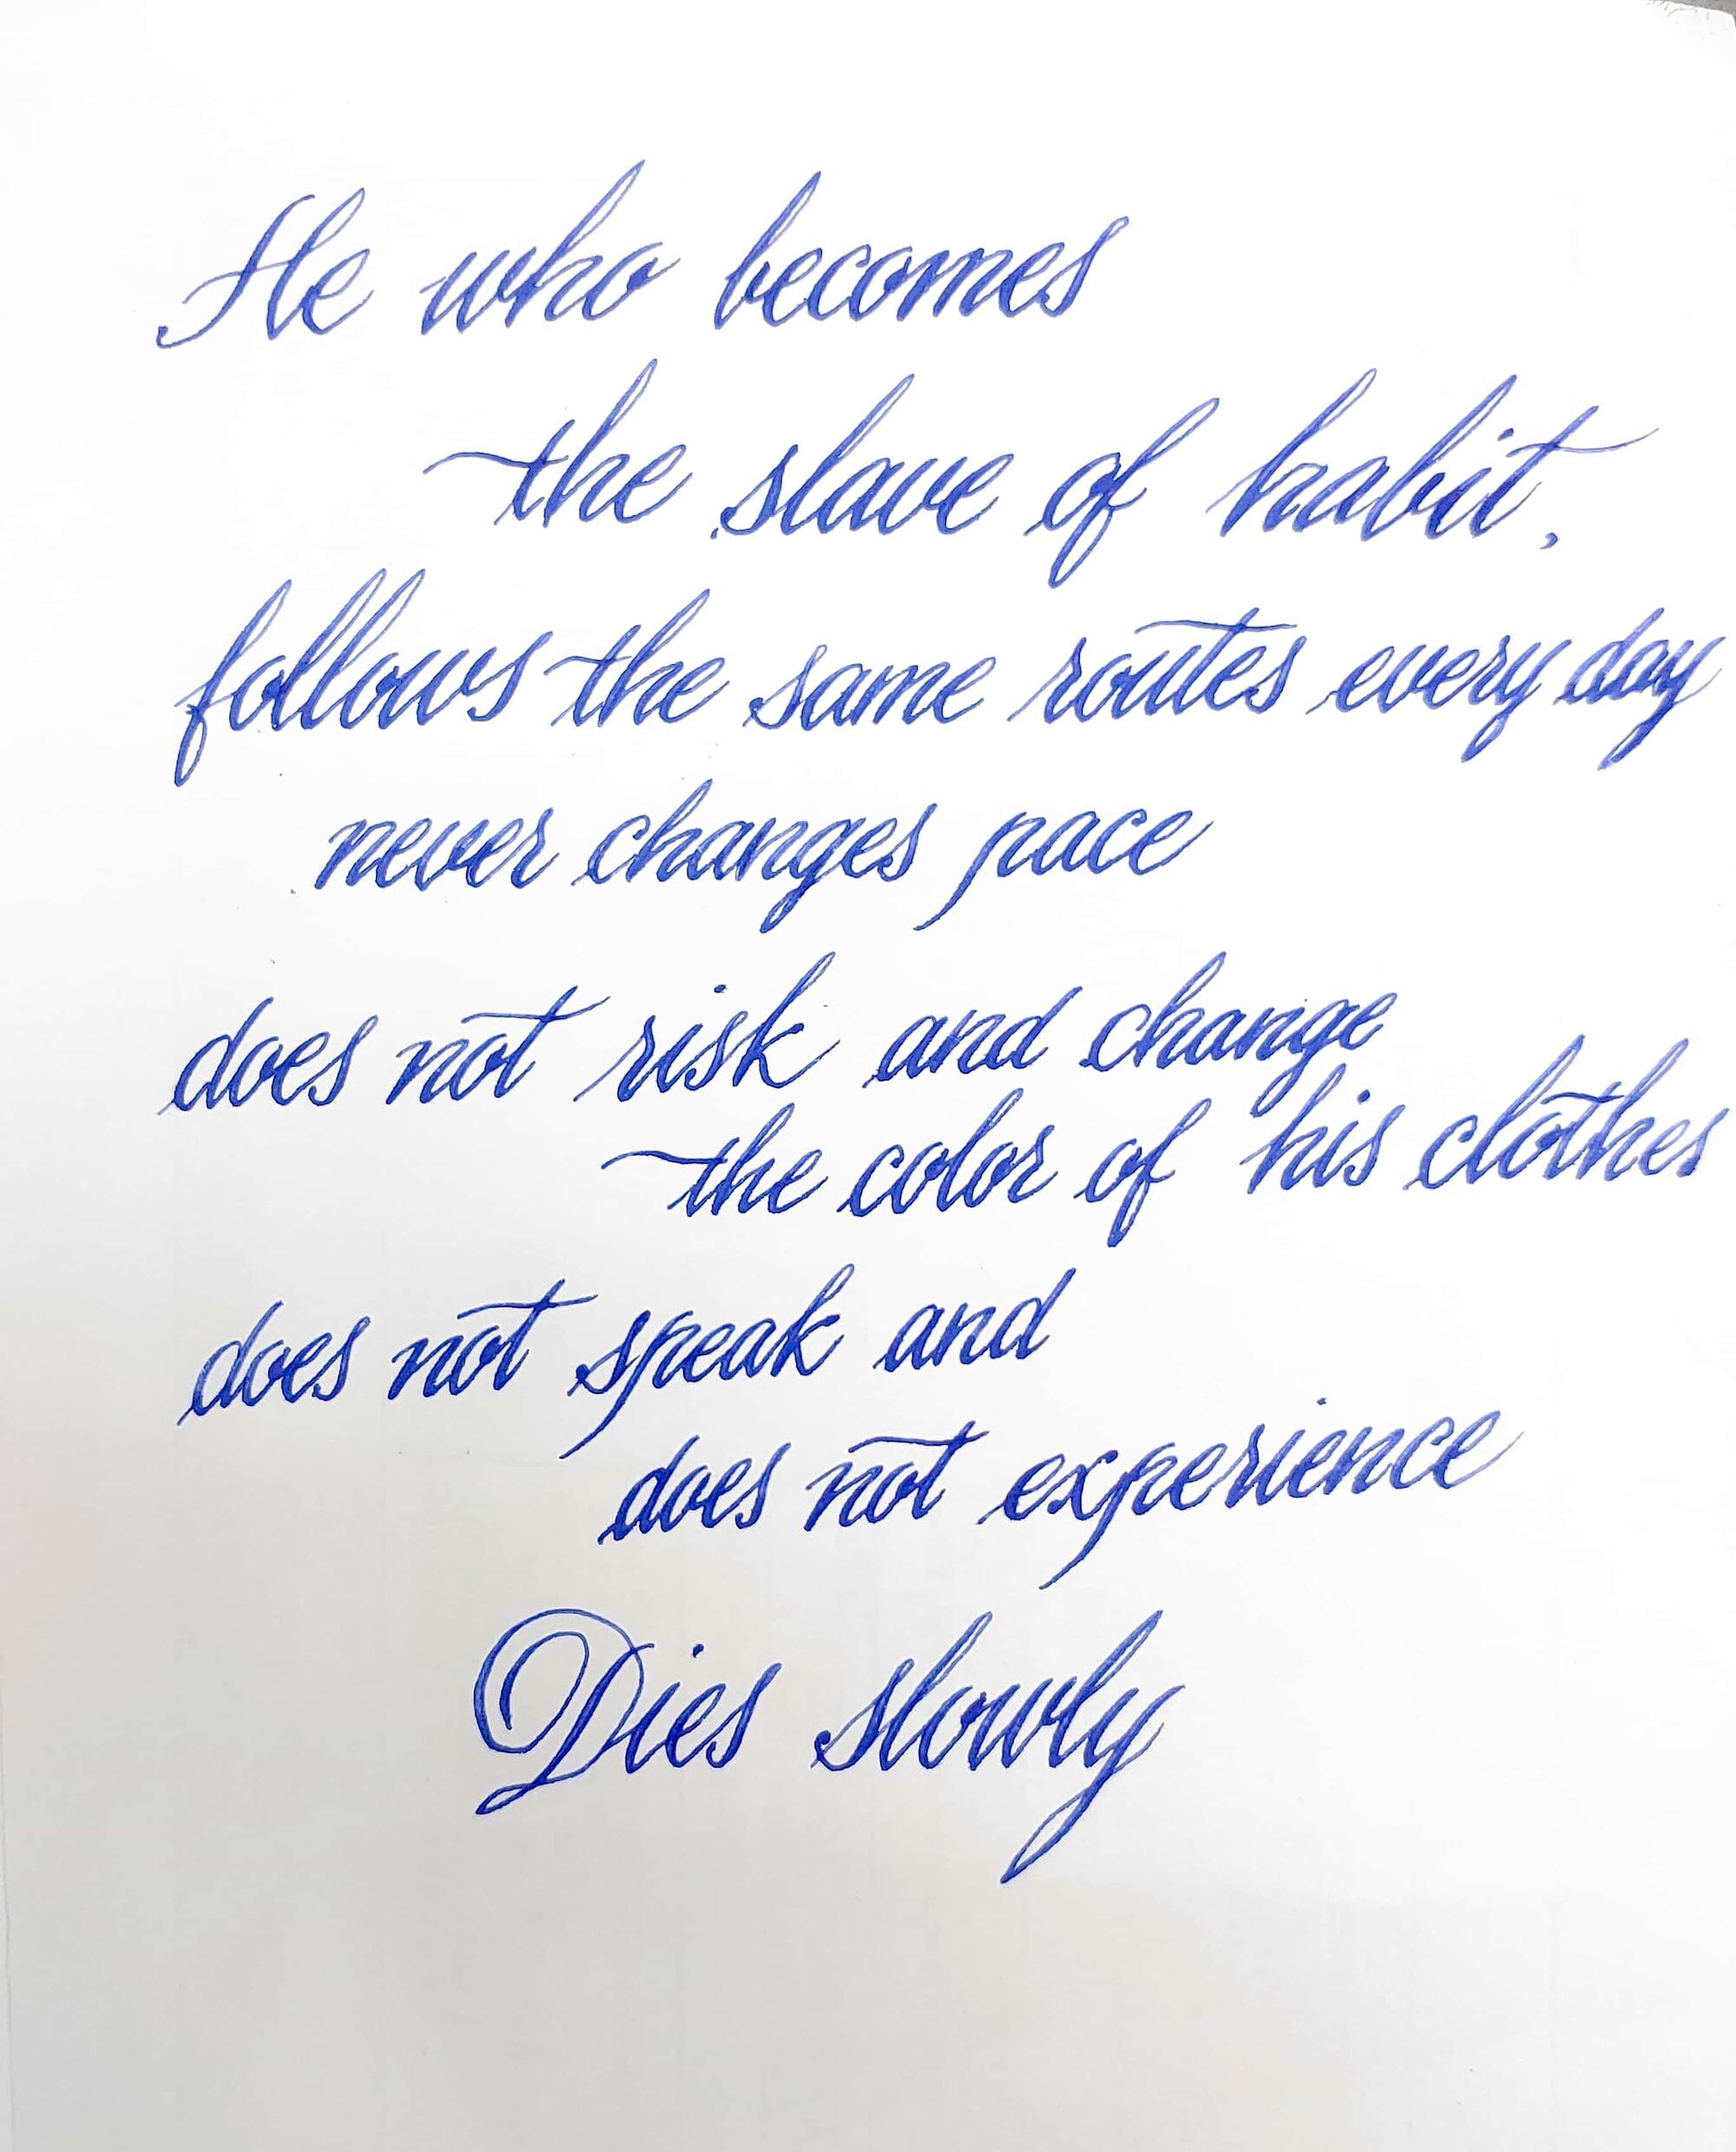 He who becomes
the slave of habit,
follows the same routes every day
never changes pace
does not risk and change
the color of his clothes
does not speak and
does not experience
Dies slowly